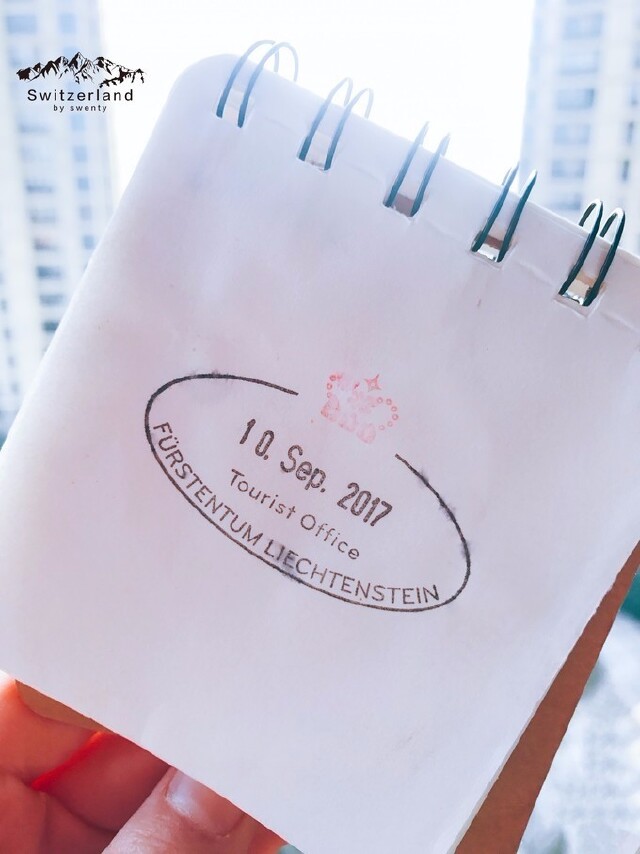 Switzerland
by swenty
10. Sep. 2017
Tourist Office
FÜRSTENTUM LIECHTENSTEIN